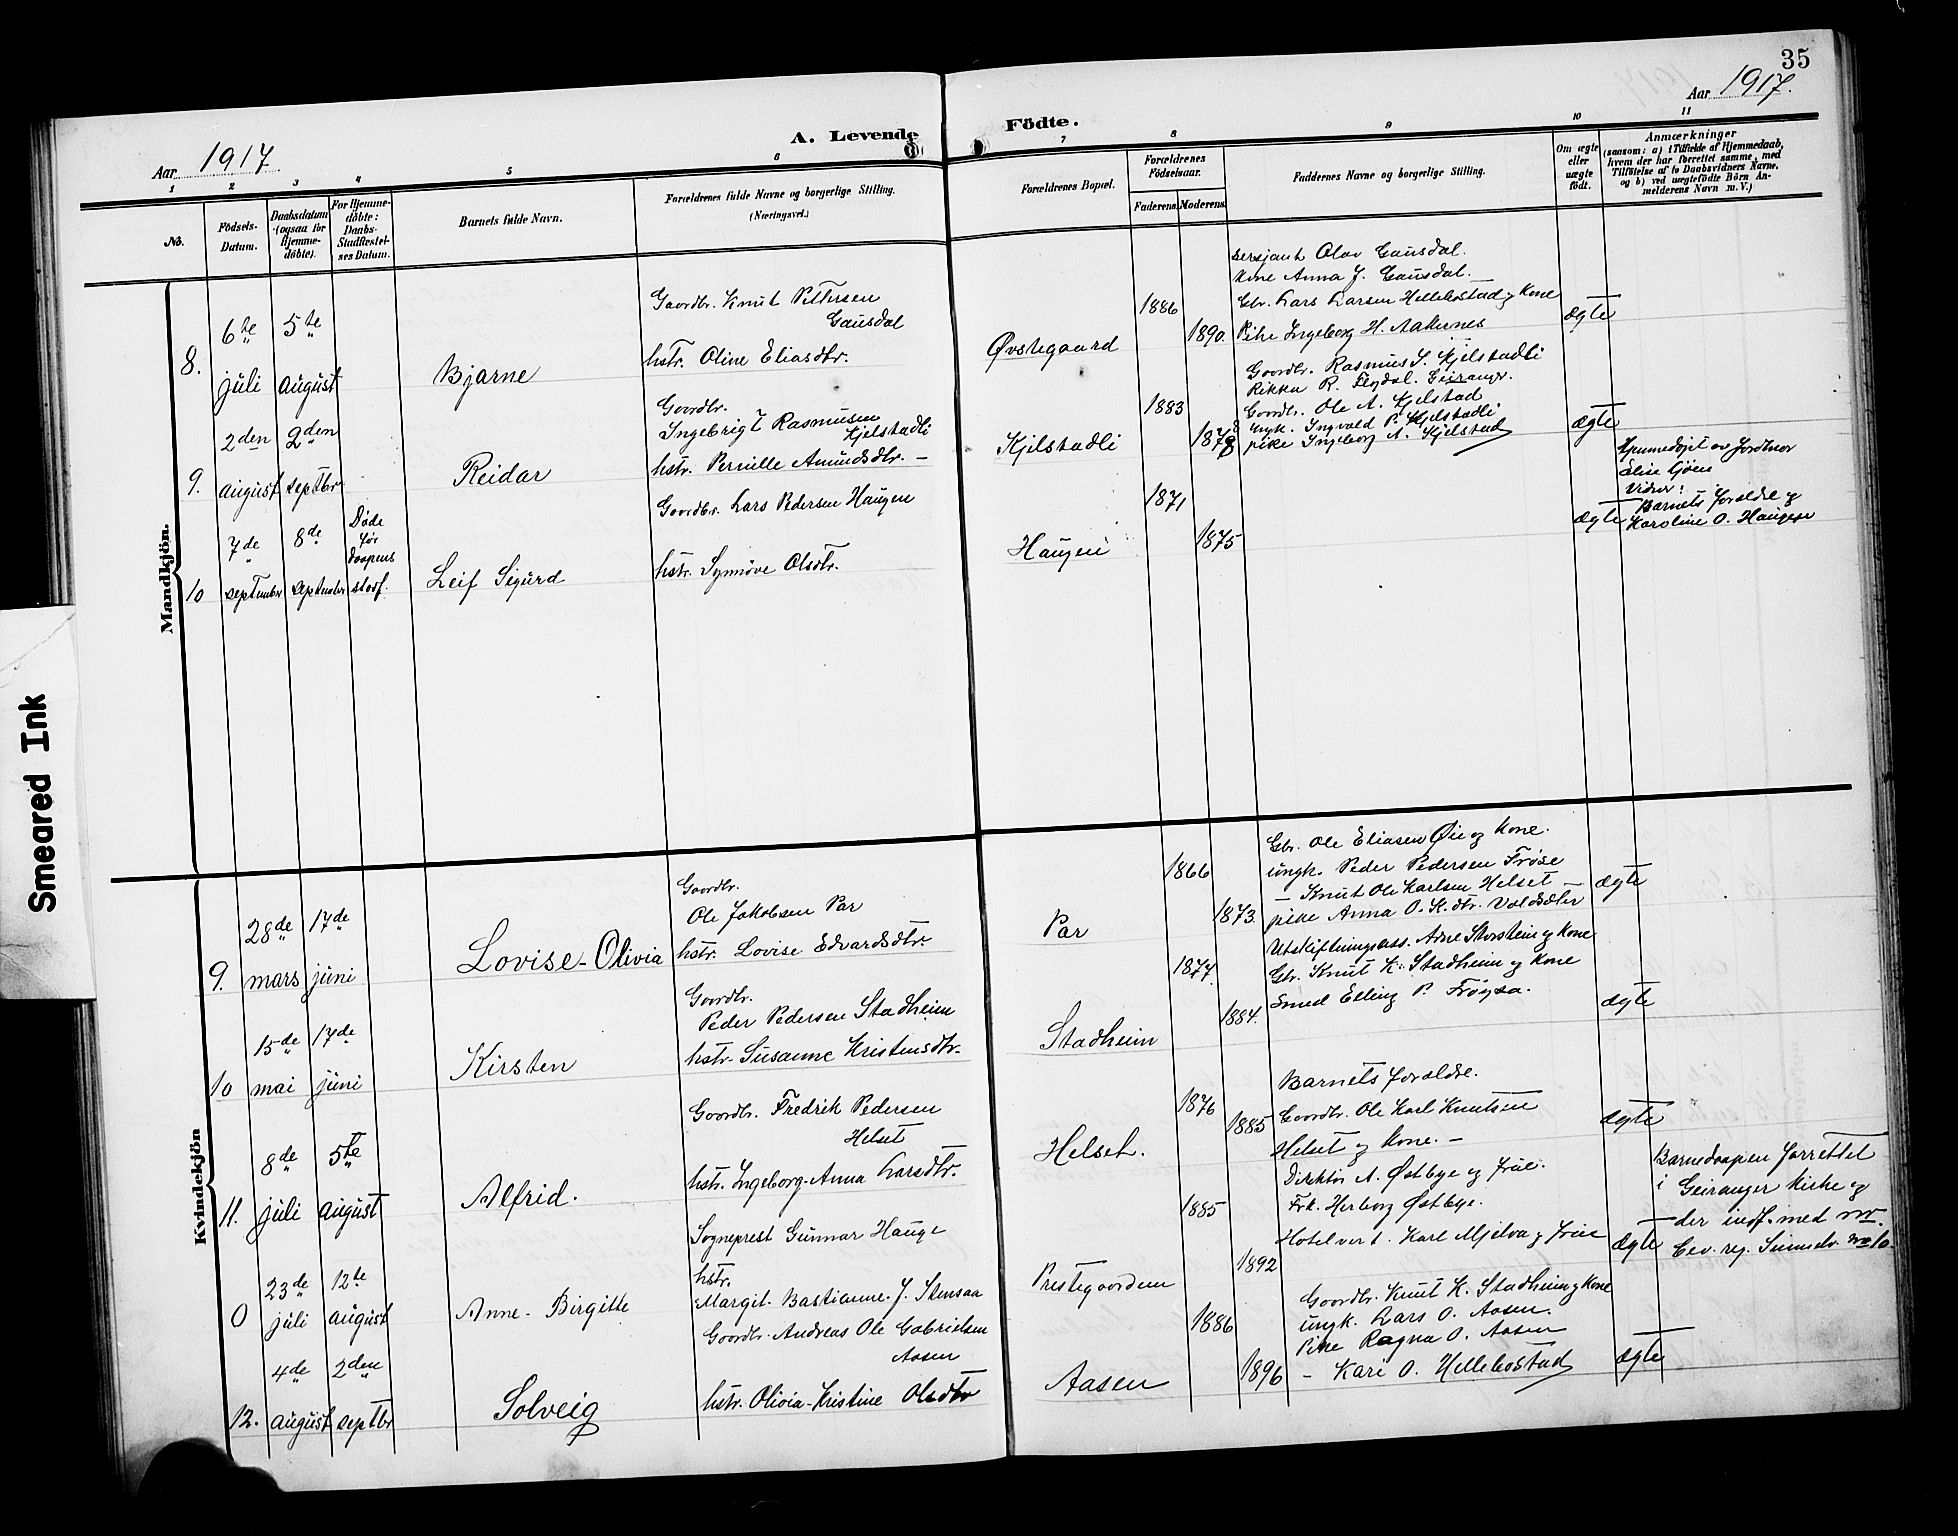 35
Aar 1917.
Aar 1917
A. Levende Födte.
1 2 3 4 5 6 7 8 9 10 11
No.
Födsels-Datum.
Daabsdatum (ogsaa for Hjemme-döbte).
For Hjemme-döbte: Daabs-Stadfæstel-ses Datum.
Barnets fulde Navn.
Forældrenes fulde Navne og borgerlige Stilling.
(Næringsvei.)
Forældrenes Bopæl.
Forældrenes Födselsaar.
Faderens. Moderens.
Faddernes Navne og borgerlige Stilling.
Om ægte eller uægte födt.
Anmærkninger
(saasom: a) i Tilfælde af Hjemmedaab, hvem der har forrettet samme, med Tilföielse af to Daabsvidners Navne, og b) ved uægtefödte Börn An-melderens Navn m. V.)
Mandkjön.
8.
6te juli
5te august
Bjarne
Gaardbr. Knut Pettersen
Gausdal
hstr. Oline Eliasdtr.
Øvstegaard
1886
1890.
Sersjant Olav Gausdal.
Kone Anna J. Gausdal.
Gbr. Lars Larsen Hellebostad og Kone
Pike Ingeborg H. Aakernes
ægte
9.
2den august
2den septbr
Reidar
Goordbr.
Ingebrigt Rasmusen
Kjelstadli
hstr. Pernille Amundsdtr. –
Kjelstadli
1883
1878
Goordbr. Rasmus S. Kjelstadli
Rikka R. Flydal. Geiranger.
Goordbr. Ole A. Kjelstad
Ungk. Ingvald P. Kjelstadli
pike Ingeborg A. Kjelstad
ægte
10
7de september
8de september
Døde før Daapens stadf.
Leif Sigurd
Goordbr. Lars Pedersen Haugen
hstr. Synnöve Olsdtr.
Haugen
1871
1875
ægte
Hjemmedøpt av Jordmor
Eline Gjøen
Vidner:
Barnets foraldre og
Karoline O. Haugen
Kvindekjön
9.
28de mars
17de juni
Lovise-Olivia
Goordbr.
Ole Jakobsen Par
hstr. Lovise Edvardsdtr.
Par
1866
1873.
Gbr. Ole Eliasen Øie og Kone.
ungk. Peder Pedersen Frøse
– Knut Ole Karlsen Helset
pike Anna O. K.dtr. Voldsdter
ægte
10
15de mai
17de juni
Kirsten
Goordbr.
Peder Pedersen Stadheim
hstr. Susanne Kristensdtr.
Stadheim
1877.
1884.
Utskiftningsass. Arne Storstein og Kone
Gbr. Knut K. Stadheim og Kone
Smed Elling P. Frøysa.
ægte
11.
8de juli
5te august
Alfrid.
Goordbr. Fredrik Pedersen
Helset
hstr. Ingeborg-Anna Larsdtr.
Helset.
1876
1885
Barnets foraldre.
Goordbr. Ole Karl Knutsen
Helset og Kone. –
ægte
0
23de juli
12te august
Anne-Birgitte
Sogneprest Gunnar Hauge
hstr.
Margit-Bastianne J. Stensaa
Prestegoordem
1885
1892
Direktør A. Østbye og frue.
Frk. Herborg Østbye.
Hotelvert. Karl Mjelva og frue
ægte
Barnedaapen forrettet
i Geiranger kirke og
der indf. med nr.
12.
4de august
2den septbr
Solveig
Goordbr. Andreas Ole Gabrielsen
Aasen
hstr. Olivia-Kristine Olsdtr
Aasen
1886
1896
Goordbr. Knut K. Stadheim og Kone
ungk. Lars O. Aasen.
Pike Ragna O. Aasen
– Kari O. Hellebostad
ægte
Smeared Ink